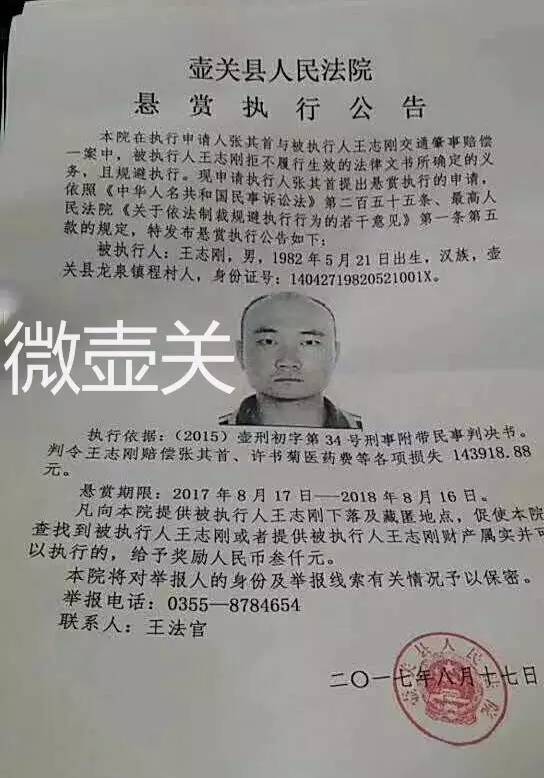 壶关县人民法院
悬赏执行公告
本院在执行申请人张其首与被执行人王志刚交通肇事赔偿
一案中，被执行人王志刚拒不履行生效的法律文书所确定的义
务，且规避执行。现申请执行人张其首提出悬赏执行的申请，
依照《中华人名共和国民事诉讼法》第二百五十五条、最高人
民法院《关于依法制裁规避执行行为的若干意见》第一条第五
款的规定，特发布悬赏执行公告如下：
被执行人：王志刚，男，1982年5月21日出生，汉族，壶
关县龙泉镇程村人，身份证号：14042719820521001X。
微壶关
执行依据：（2015）壶刑初字第34号刑事附带民事判决书。
判令王志刚赔偿张其首、许书菊医药费等各项损失 143918.88
元。
悬赏期限：2017年8月17日——2018年8月16日。
凡向本院提供被执行人王志刚下落及藏匿地点，促使本院
查找到被执行人王志刚或者提供被执行人王志刚财产属实并可
以执行的，给予奖励人民币叁仟元。
本院将对举报人的身份及举报线索有关情况予以保密。
举报电话：0355—8784654
联系人：王法官
二〇一七年八月十七日
壶关县人民法院